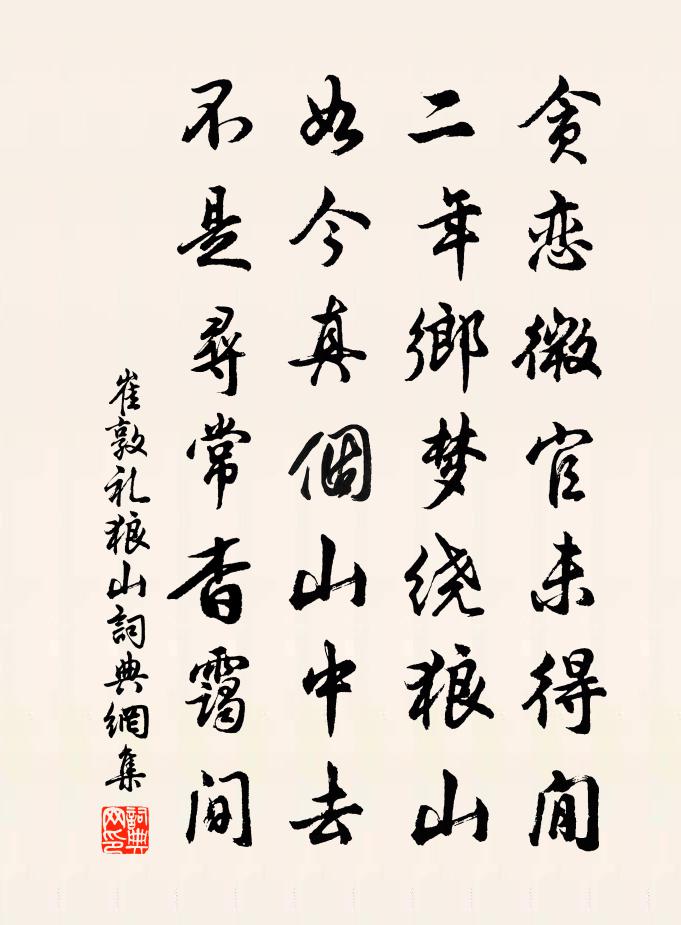 贪恋微官未得闲
二年鄉梦绕狼山
如今真個山中去
不是尋常杳靄间
崔敦礼狼山詞典網集
詞典网印